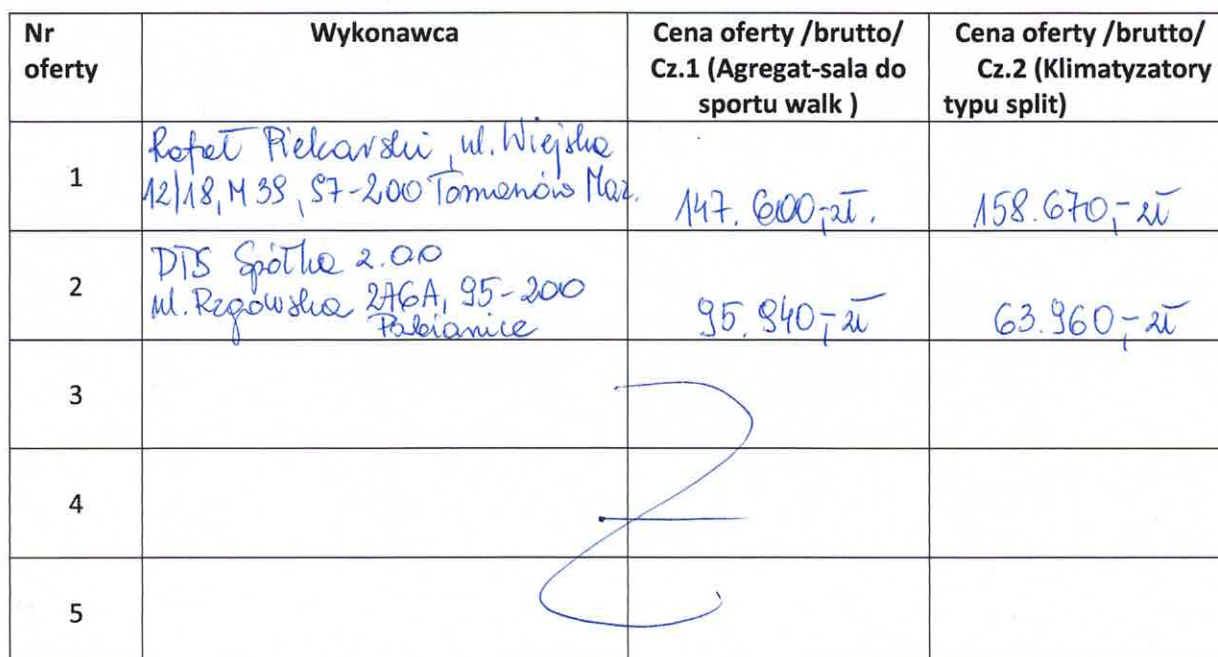 Nr oferty
Wykonawca
Cena oferty /brutto/
Cz.1 (Agregat-sala do
sportu walk )
Cena oferty /brutto/
Cz.2 (Klimatyzatory
typu split)
1
Rafał Piekarski, ul. Wiejska
12/18, M 39, 97-200 Tomaszów Maz.
147.600,-zł.
158.670,-zł
2
DTS Spółka z.o.o
ul. Rzgowska 276A, 95-200
Pabianice
95.940,-zł
63.960,-zł
3
4
5